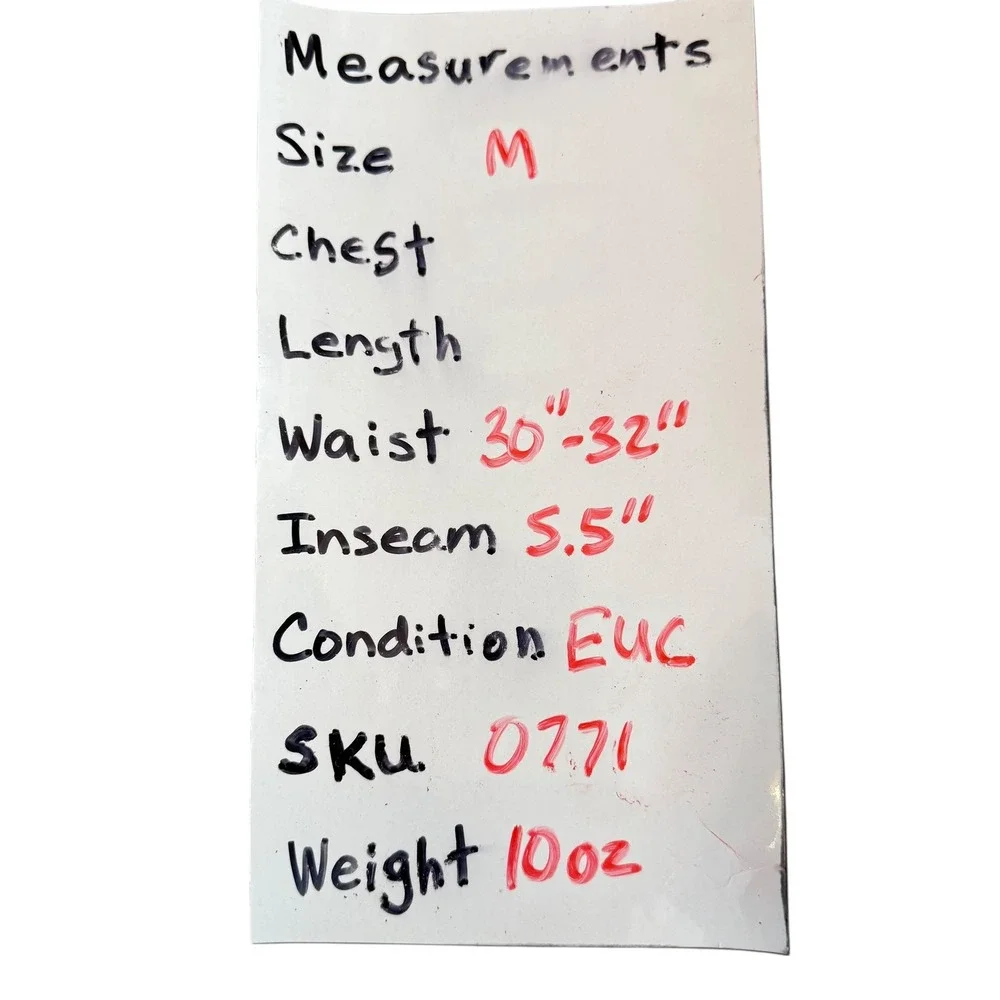 Measurements
Size M
Chest
Length
Waist 30"-32"
Inseam 5.5"
Condition EUC
SKU 0771
Weight 10oz